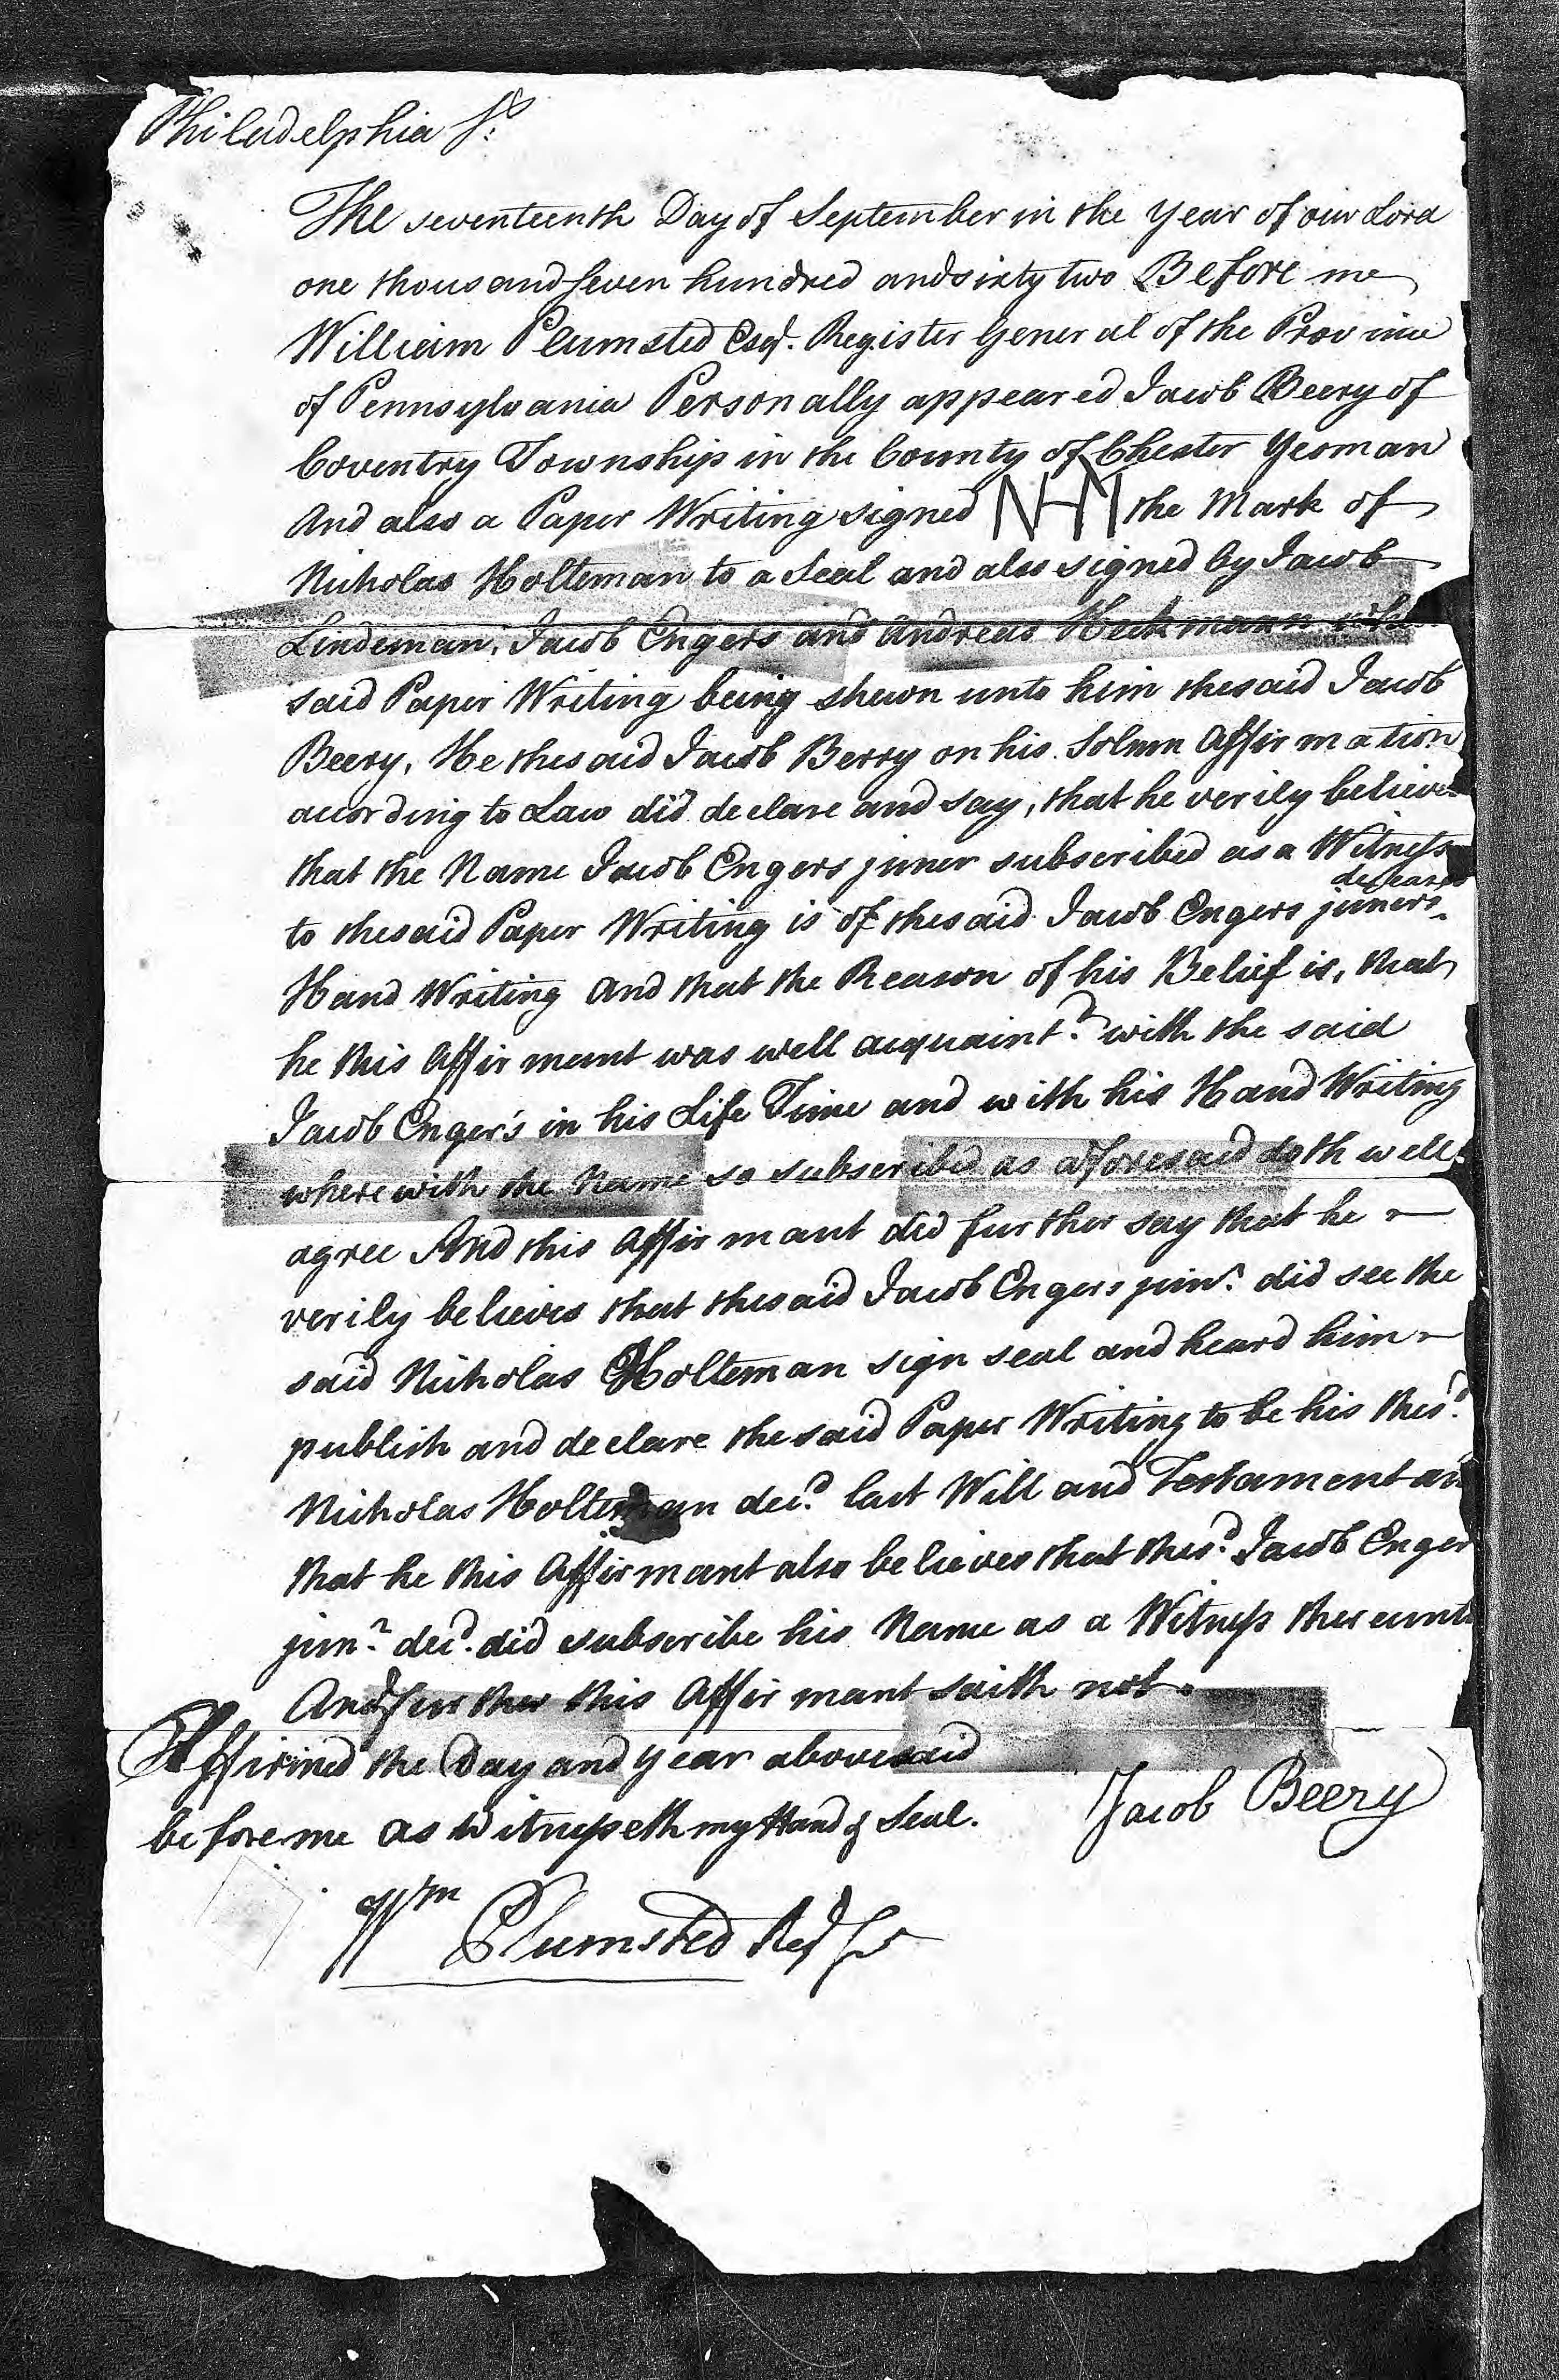 Philadelphia ss.
The seventeenth Day of September in the Year of our Lord
one thousand seven hundred and sixty two Before me
William Plumsted Esqr. Register General of the Province
of Pennsylvania Personally appeared Jacob Beery of
Coventry Township in the County of Chester Yeoman
And also a Paper Writing signed NHM the Mark of
Nicholas Holteman to a Seal and also signed by Jacob
Lindeman, Jacob Engers and Andreas Heckmann
said Paper Writing being shewn unto him the said Jacob
Beery, He the said Jacob Berry on his Solemn Affirmation
according to Law did declare and say, that he verily believes
that the Name Jacob Engers juner subscribed as a Witness
deceased
to the said Paper Writing is of the said Jacob Engers juners
Hand Writing and that the Reason of his Belief is, that
he this Affirmant was well acquaintd. with the said
Jacob Enger's in his Life Time and with his Hand Writing
wherewith the Name so subscribed as aforesaid doth well
agree And this Affirmant did further say that he
verily believes that the said Jacob Engers junr. did see the
said Nicholas Holteman sign seal and heard him
publish and declare the said Paper Writing to be his the sd.
Nicholas Holteman decd. last Will and Testament an
that he this Affirmant also believes that the sd. Jacob Enger
junr. decd. did subscribe his Name as a Witness thereunto
And further this Affirmant saith not.
Affirmed the Day and Year abovesaid
before me as Witnesseth my Hand & Seal.
Jacob Beery
Wm Plumsted Reg Gl